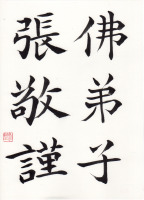 佛弟子
張敬謹